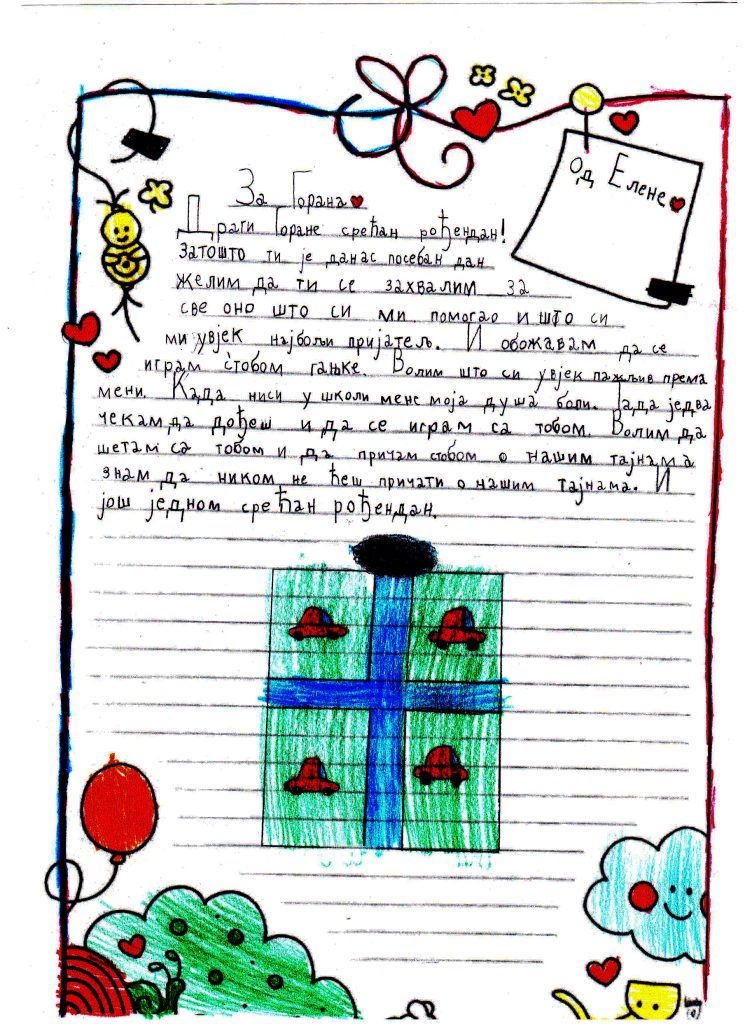 од Елене
За Горана
Драги Горане срећан рођендан!
Затошто ти је данас посебан дан
желим да ти се захвалим за
све оно што си ми помогао и што си
ми увјек најбољи пријатељ. И обожавам да се
играм стобом гањке. Волим што си увјек пажљив према
мени. Када ниси у школи мене моја душа боли. Тада једва
чекам да дођеш и да се играм са тобом. Волим да
шетам са тобом и да причам стобом о нашим тајнама
знам да ником не ћеш причати о нашим тајнама. И
још једном срећан рођендан.